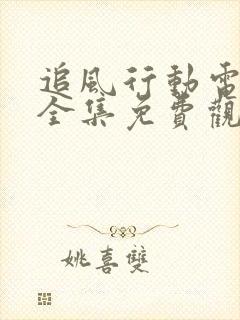 追風行動電
全集免費觀
姚喜雙